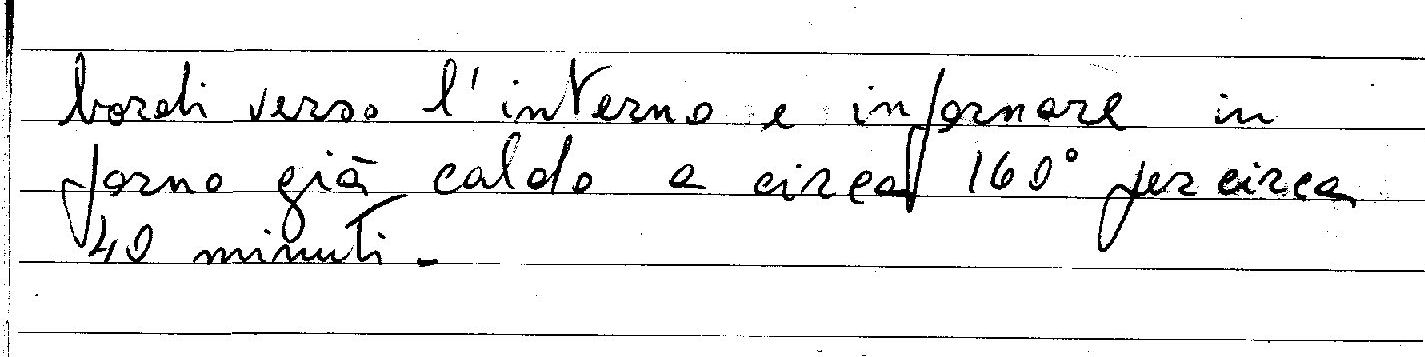 bordi verso l'interno e infornare in
forno già caldo a circa 160° per circa
40 minuti.